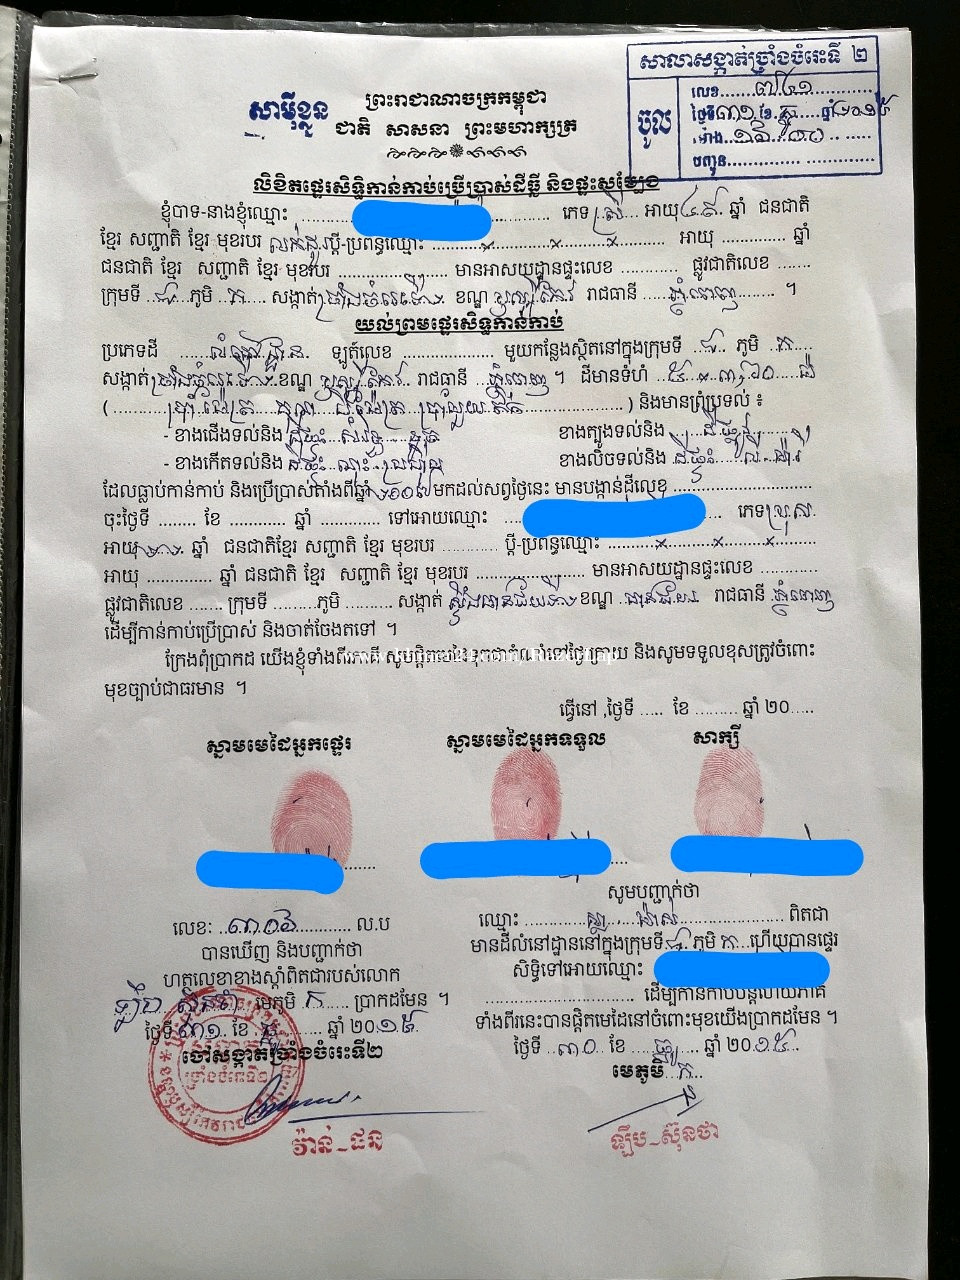 សាលាសង្កាត់ច្រាំងចំរេះទី ២
លេខ
ថ្ងៃទី ៣១ ខែ
ម៉ោង
បញ្ជូន
ចូល
សាម៉ីខ្លួន
ព្រះរាជាណាចក្រកម្ពុជា
ជាតិ សាសនា ព្រះមហាក្សត្រ
លិខិតផ្ទេរសិទ្ធិកាន់កាប់ប្រើប្រាស់ដីធ្លី និងផ្ទះសម្បែង
ខ្ញុំបាទ-នាងខ្ញុំឈ្មោះ ភេទ ស្រី អាយុ ៤៩ ឆ្នាំ ជនជាតិ
ខ្មែរ សញ្ជាតិ ខ្មែរ មុខរបរ លក់ដូរ ប្តី-ប្រពន្ធឈ្មោះ អាយុ ឆ្នាំ
ជនជាតិ ខ្មែរ សញ្ជាតិ ខ្មែរ មុខរបរ មានអាសយដ្ឋានផ្ទះលេខ ផ្លូវជាតិលេខ
ក្រុមទី ៨ ភូមិ ក សង្កាត់ ច្រាំងចំរេះទី២ ខណ្ឌ ឫស្សីកែវ រាជធានី ភ្នំពេញ ។
យល់ព្រមផ្ទេរសិទ្ធកាន់កាប់
ប្រភេទដី លំនៅដ្ឋាន ឡូត៍លេខ មួយកន្លែងស្ថិតនៅក្នុងក្រុមទី ៨ ភូមិ ក
សង្កាត់ ច្រាំងចំរេះទី២ ខណ្ឌ ឫស្សីកែវ រាជធានី ភ្នំពេញ ។ ដីមានទំហំ ៥ x ៣,៦០ ម៉
( ប្រាំម៉ែត្រ គុណ បីម៉ែត្រ ) និងមានព្រំប្រទល់ ៖
- ខាងជើងទល់និង ដីផ្ទះ ខាងត្បូងទល់និង
- ខាងកើតទល់និង ដីផ្ទះ ខាងលិចទល់និង ដីផ្ទះ
ដែលធ្លាប់កាន់កាប់ និងប្រើប្រាស់តាំងពីឆ្នាំ មកដល់សព្វថ្ងៃនេះ មានបង្កាន់ដីលេខ
ចុះថ្ងៃទី ខែ ឆ្នាំ ទៅអោយឈ្មោះ ភេទ ប្រុស
អាយុ ឆ្នាំ ជនជាតិខ្មែរ សញ្ជាតិ ខ្មែរ មុខរបរ ប្តី-ប្រពន្ធឈ្មោះ
អាយុ ឆ្នាំ ជនជាតិ ខ្មែរ សញ្ជាតិ ខ្មែរ មុខរបរ មានអាសយដ្ឋានផ្ទះលេខ
ផ្លូវជាតិលេខ ក្រុមទី ភូមិ សង្កាត់ ស្ទឹងមានជ័យទី២ ខណ្ឌ មានជ័យ រាជធានី ភ្នំពេញ
ដើម្បីកាន់កាប់ប្រើប្រាស់ និងចាត់ចែងតទៅ ។
ក្រែងពុំប្រាកដ យើងខ្ញុំទាំងពីរភាគី សូមផ្តិតមេដៃទុកជាតំណាំទៅថ្ងៃក្រោយ និងសូមទទួលខុសត្រូវចំពោះ
មុខច្បាប់ជាធរមាន ។
ធ្វើនៅ ,ថ្ងៃទី ខែ ឆ្នាំ ២០
ស្នាមមេដៃអ្នកផ្ទេរ ស្នាមមេដៃអ្នកទទួល សាក្សី
លេខ: ៣០៦ ល.ប
បានឃើញ និងបញ្ជាក់ថា
ហត្ថលេខាខាងស្តាំពិតជារបស់លោក
ឡឹប ស៊ុនថា មេភូមិ ក ប្រាកដមែន ។
ថ្ងៃទី ៣១ ខែ ធ្នូ ឆ្នាំ ២០១៥
ចៅសង្កាត់ច្រាំងចំរេះទី២
វ៉ាន់-ផនិ
សូមបញ្ជាក់ថា
ឈ្មោះ ពិតជា
មានដីលំនៅដ្ឋាននៅក្នុងក្រុមទី ៨ ភូមិ ក ហើយបានផ្ទេរ
សិទ្ធិទៅអោយឈ្មោះ
ដើម្បីកាន់កាប់បន្តហើយភាគី
ទាំងពីរនេះបានផ្តិតមេដៃនៅចំពោះមុខយើងប្រាកដមែន ។
ថ្ងៃទី ៣០ ខែ ធ្នូ ឆ្នាំ ២០១៥
មេភូមិ ក
ឡឹប-ស៊ុនថា